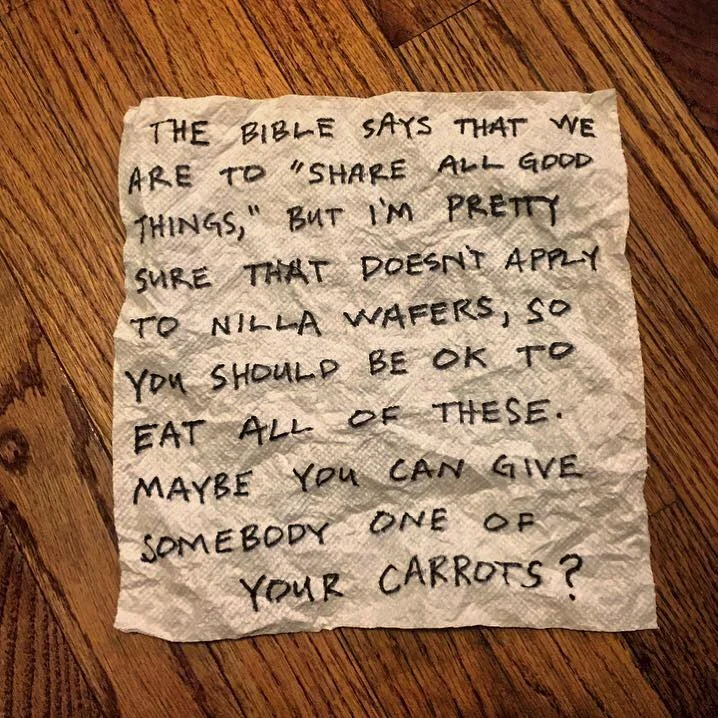 THE BIBLE SAYS THAT WE
ARE TO "SHARE ALL GOOD
THINGS," BUT I'M PRETTY
SURE THAT DOESN'T APPLY
TO NILLA WAFERS, SO
YOU SHOULD BE OK TO
EAT ALL OF THESE.
MAYBE YOU CAN GIVE
SOMEBODY ONE OF
YOUR CARROTS?